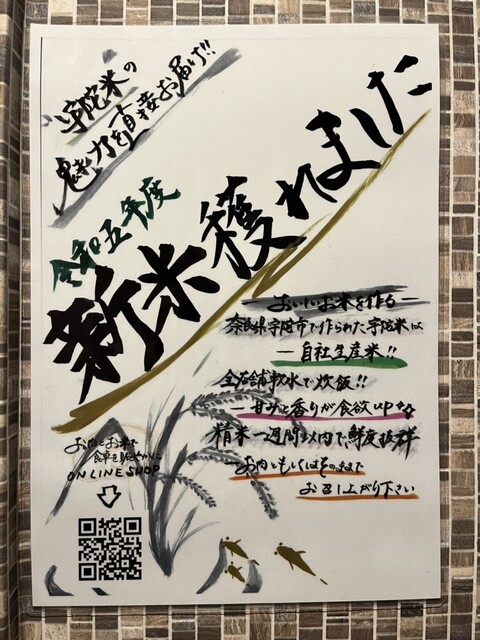 宇陀米の
魅力を直接お届け!!
令和五年度
新米獲れました
おいしいお米を作る
奈良県宇陀市で作られた宇陀米は
自社生産米!!
全店舗軟水で炊飯!!
甘みと香りが食欲UP
精米一週間以内で、鮮度抜群
お肉ともしくはそのままで
お召し上がり下さい
お肉とお米で
食卓を賑やかに
ONLINE SHOP